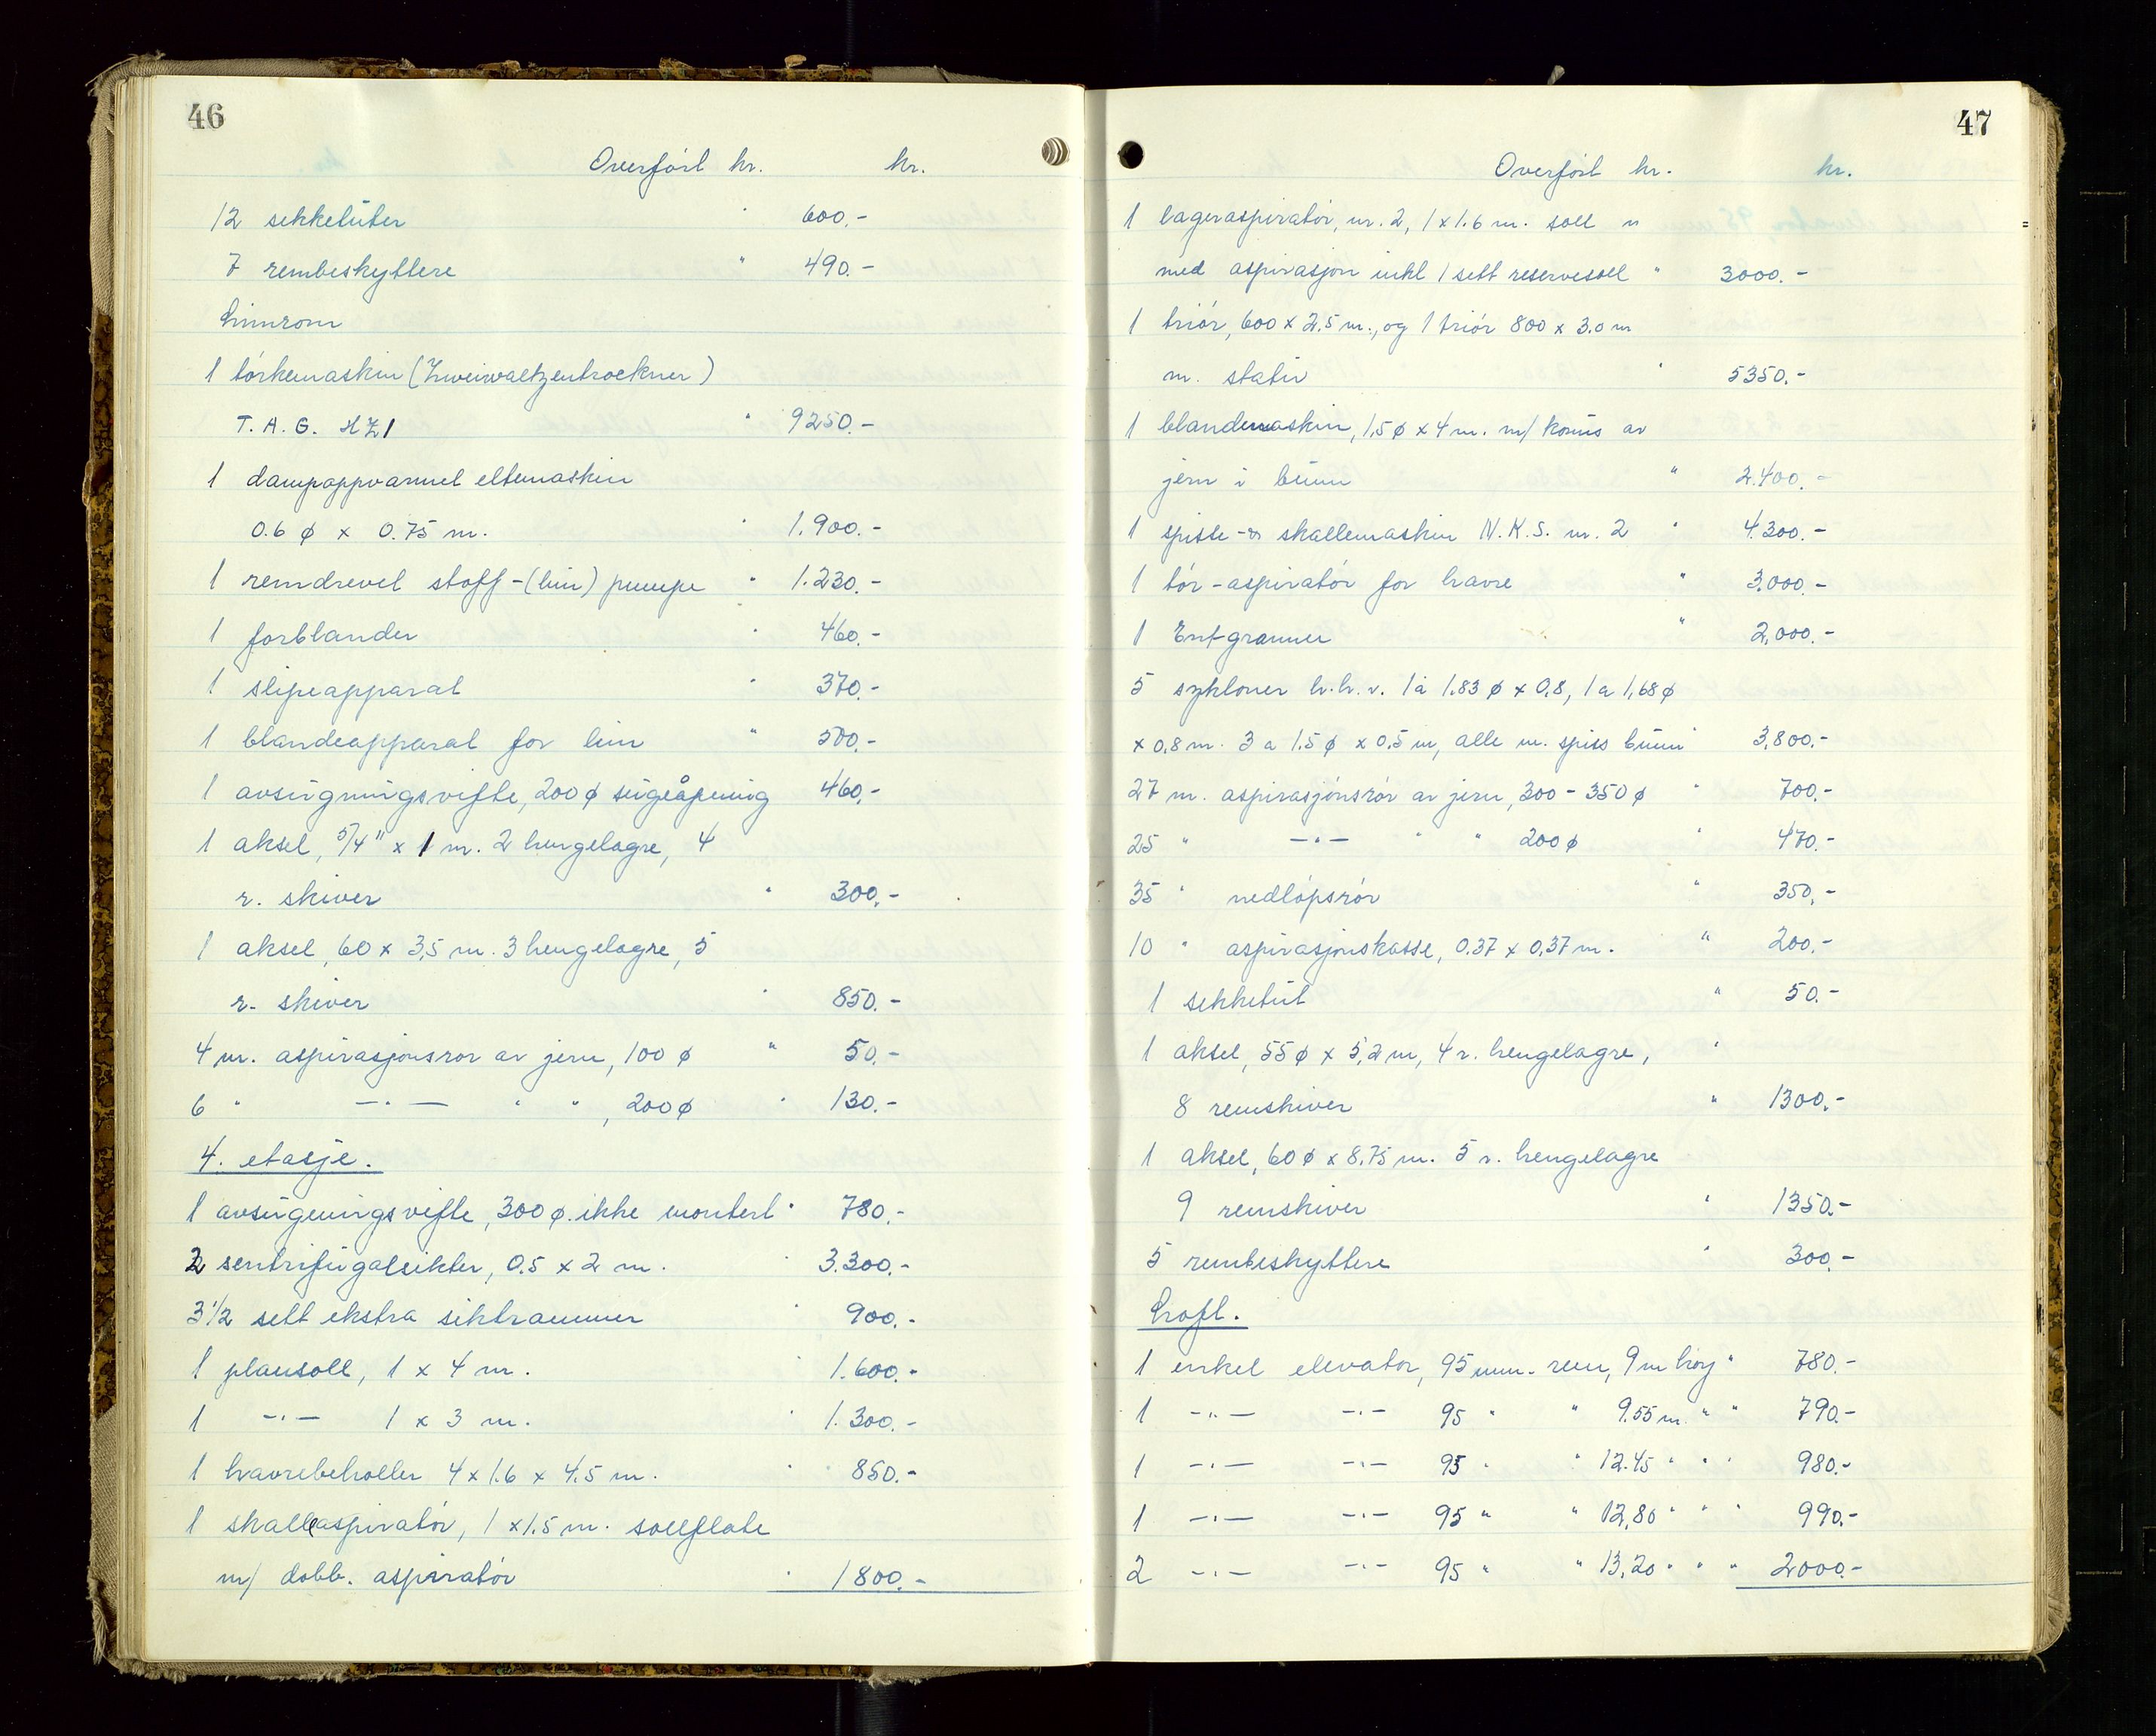 46
Overført kr. kr.
12 sekketuter " 600.-
7 rembeskyttere " 490.-
Limrom
1 tørkemaskin (Zweiwaltzentrockner)
T. A. G. HZ1 " 9250.-
1 dampoppvarmet eltemaskin
0.6 ø x 0.75 m. " 1.900.-
1 remdrevet stoff-(lim) pumpe " 1.230.-
1 forblander " 460.-
1 slipeapparat " 370.-
1 blandeapparat for lim " 500.-
1 avsugningsvifte, 200 ø sugeåpning 460.-
1 aksel, 5/4" x 1 m. 2 hengelagre, 4
r. skiver " 300.-
1 aksel, 60 x 3,5 m. 3 hengelagre, 5
r. skiver " 850.-
4 m. aspirasjonsrør av jern, 100 ø " 50.-
6 " -"- " " , 200 ø " 130.-
4. etasje.
1 avsugningsvifte, 300 ø. ikke montert " 780.-
2 sentrifugalsikter, 0.5 x 2 m. " 3.300.-
3 1/2 sett ekstra siktrammer " 900.-
1 plansoll, 1 x 4 m. " 1.600.-
1 -"- 1 x 3 m. " 1.300.-
1 havrebeholler 4 x 1.6 x 4.5 m. " 850.-
1 skalleaspiratør, 1 x 1.5 m. sollflate
m/ dobb. aspiratør " 1800.-
47
Overført kr. kr.
1 lageraspiratør, nr. 2, 1 x 1.6 m. soll n
med aspirasjon inkl 1 sett reservesoll " 3000.-
1 triør, 600 x 2.5 m., og 1 triør 800 x 3.0 m
m. stativ " 5350.-
1 blandemaskin, 1,5 ø x 4 m. m/ konus av
jern i bunn " 2.400.-
1 spisse- & skallemaskin N.K.S. nr. 2 " 4.300.-
1 tør-aspiratør for havre " 3.000.-
1 Entgranner " 2.000.-
5 sykloner h.h.v. 1 à 1.83 ø x 0,8, 1 a 1,68 ø
x 0,8 m. 3 a 1.5 ø x 0.5 m, alle m. spiss bunn " 3.800.-
27 m. aspirasjonsrør av jern, 300 - 350 ø " 700.-
25 " -"- " " 200 ø " 470.-
35 " nedløpsrør " 350.-
10 " aspirasjonskasse, 0.37 x 0,37 m. " 200.-
1 sekketut " 50.-
1 aksel, 55 ø x 5,2 m, 4 r. hengelagre, "
8 remskiver " 1300.-
1 aksel, 60 ø x 8,75 m. 5 r. hengelagre
9 remskiver " 1350.-
5 rembeskyttere " 300.-
Loft.
1 enkel elevator, 95 mm. rem, 9 m høy " 780.-
1 -"- -"- 95 " " 9.55 m. " " 790.-
1 -"- -"- 95 " " 12.45 " " " 980.-
1 -"- -"- 95 " " 12,80 " " " 990.-
2 -"- -"- 95 " " 13,20 " " " 2000.-